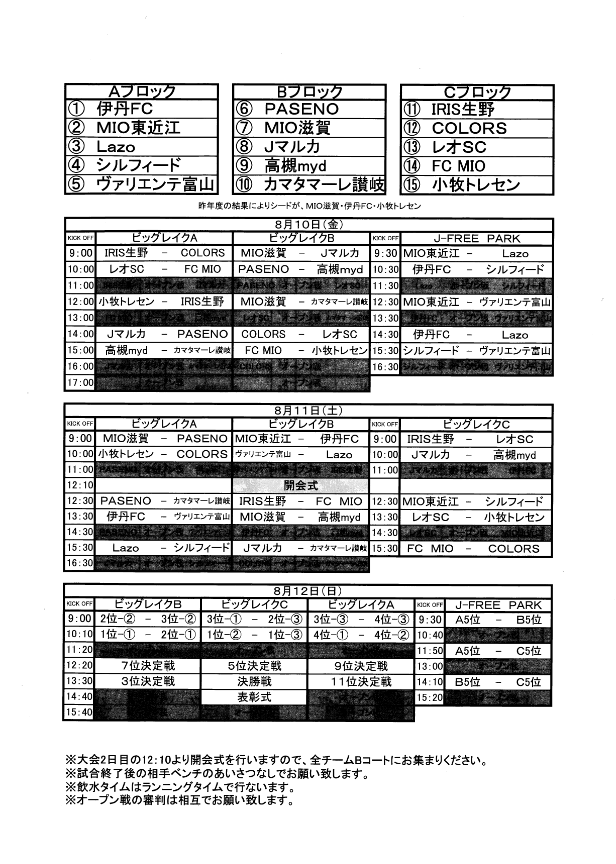 Aブロック Bブロック Cブロック
① 伊丹FC ⑥ PASENO ⑪ IRIS生野
② MIO東近江 ⑦ MIO滋賀 ⑫ COLORS
③ Lazo ⑧ Jマルカ ⑬ レオSC
④ シルフィード ⑨ 高槻myd ⑭ FC MIO
⑤ ヴァリエンテ富山 ⑩ カマタマーレ讃岐 ⑮ 小牧トレセン
昨年度の結果によりシードが、MIO滋賀・伊丹FC・小牧トレセン
8月10日(金)
KICK OFF ビッグレイクA ビッグレイクB KICK OFF J-FREE PARK
9:00 IRIS生野 - COLORS MIO滋賀 - Jマルカ 9:30 MIO東近江 - Lazo
10:00 レオSC - FC MIO PASENO - 高槻myd 10:30 伊丹FC - シルフィード
11:00 11:30
12:00 小牧トレセン - IRIS生野 MIO滋賀 - カマタマーレ讃岐 12:30 MIO東近江 - ヴァリエンテ富山
13:00 13:30
14:00 Jマルカ - PASENO COLORS - レオSC 14:30 伊丹FC - Lazo
15:00 高槻myd - カマタマーレ讃岐 FC MIO - 小牧トレセン 15:30 シルフィード - ヴァリエンテ富山
16:00 16:30
17:00
8月11日(土)
KICK OFF ビッグレイクA ビッグレイクB KICK OFF ビッグレイクC
9:00 MIO滋賀 - PASENO MIO東近江 - 伊丹FC 9:00 IRIS生野 - レオSC
10:00 小牧トレセン - COLORS ヴァリエンテ富山 - Lazo 10:00 Jマルカ - 高槻myd
11:00 11:00
12:10 開会式
12:30 PASENO - カマタマーレ讃岐 IRIS生野 - FC MIO 12:30 MIO東近江 - シルフィード
13:30 伊丹FC - ヴァリエンテ富山 MIO滋賀 - 高槻myd 13:30 レオSC - 小牧トレセン
14:30 14:30
15:30 Lazo - シルフィード Jマルカ - カマタマーレ讃岐 15:30 FC MIO - COLORS
16:30
8月12日(日)
KICK OFF ビッグレイクB ビッグレイクC ビッグレイクA KICK OFF J-FREE PARK
9:00 2位-② - 3位-② 3位-① - 2位-③ 3位-③ - 4位-③ 9:30 A5位 - B5位
10:10 1位-① - 2位-① 1位-② - 1位-③ 4位-① - 4位-② 10:40
11:20 11:50 A5位 - C5位
12:20 7位決定戦 5位決定戦 9位決定戦 13:00
13:30 3位決定戦 決勝戦 11位決定戦 14:10 B5位 - C5位
14:40 表彰式 15:20
15:40
※大会2日目の12:10より開会式を行いますので、全チームBコートにお集まりください。
※試合終了後の相手ベンチのあいさつなしでお願い致します。
※飲水タイムはランニングタイムで行ないます。
※オープン戦の審判は相互でお願い致します。